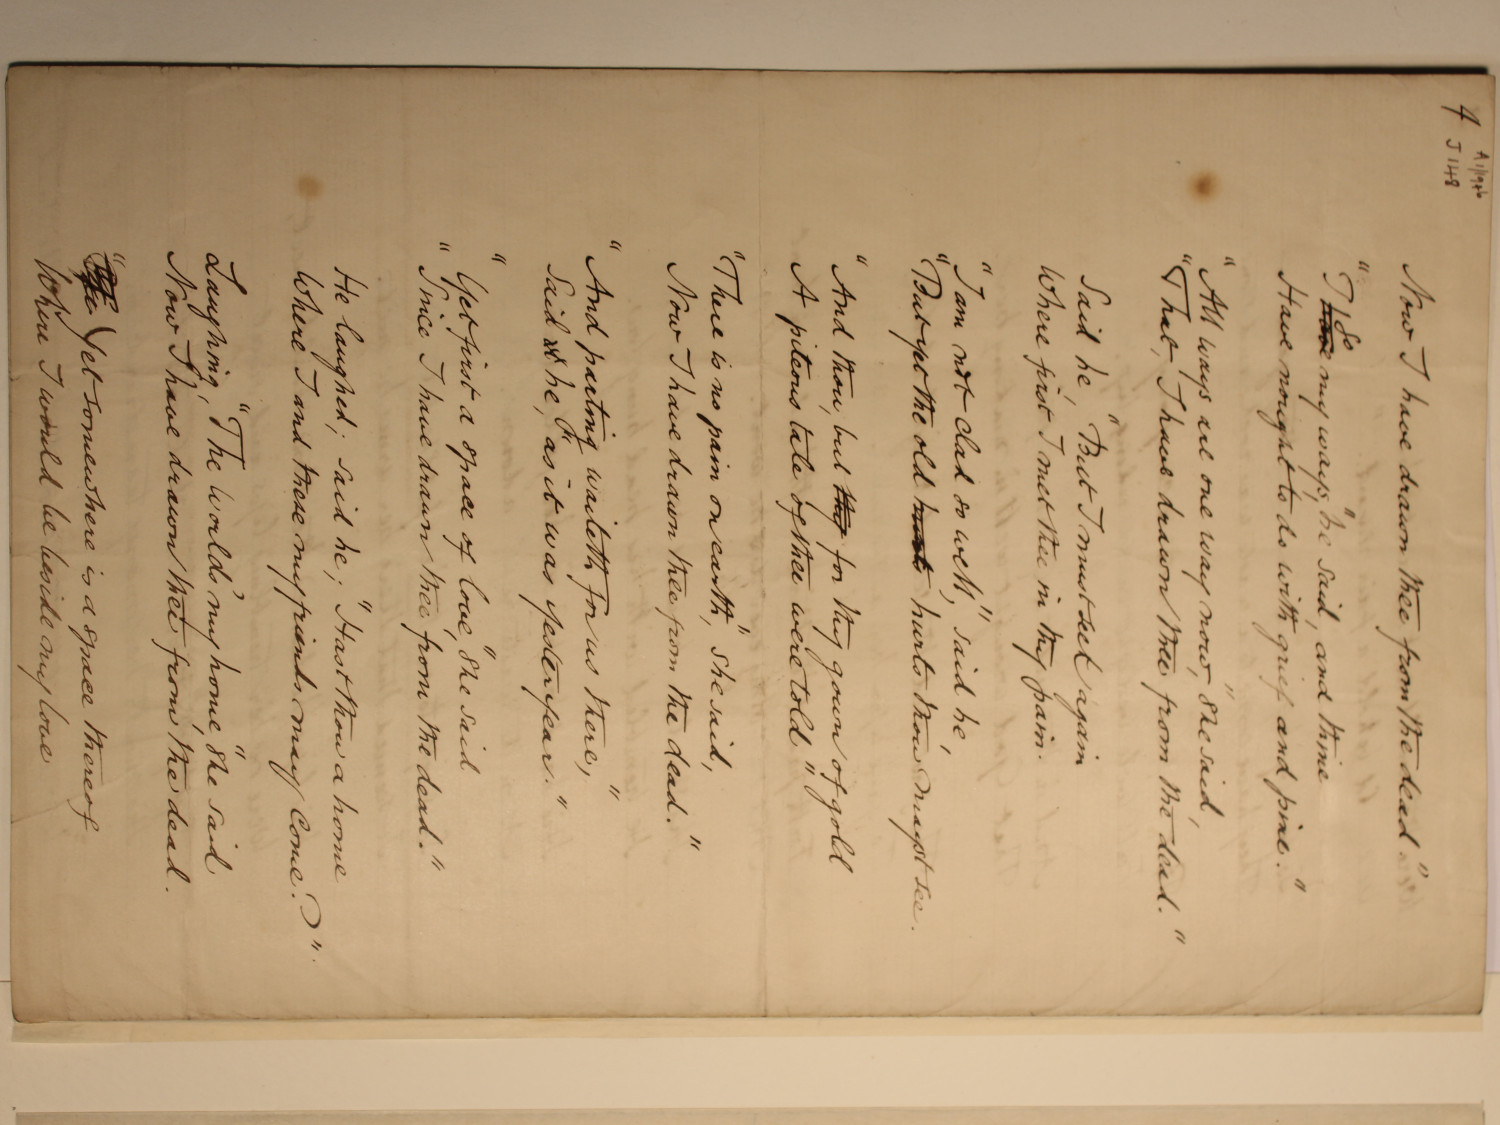 4
J 148
Now I have drawn thee from the dead."
"I go my ways," he said, "and thine
Have nought to do with grief and pine."
"All ways are one way now," she said,
"That I have drawn thee from the dead."
Said he, "But I must seek again
Where first I met thee in thy pain.
"I am not clad so well," said he,
"But yet the old hurts thou mayst see.
"And thou, but for thy gown of gold
A piteous tale of thee were told."
"There is no pain on earth," she said,
Now I have drawn thee from the dead."
"And parting waiteth for us there,"
Said he, "as it was yesteryear."
"Yet first a space of love," she said
"Since I have drawn thee from the dead."
He laughed; said he; "Hast thou a home
Where I and these my friends may come?"
Laughing, "The world's my home," she said
Now I have drawn thee from the dead.
"Yet somewhere is a space thereof
Where I would be beside my love